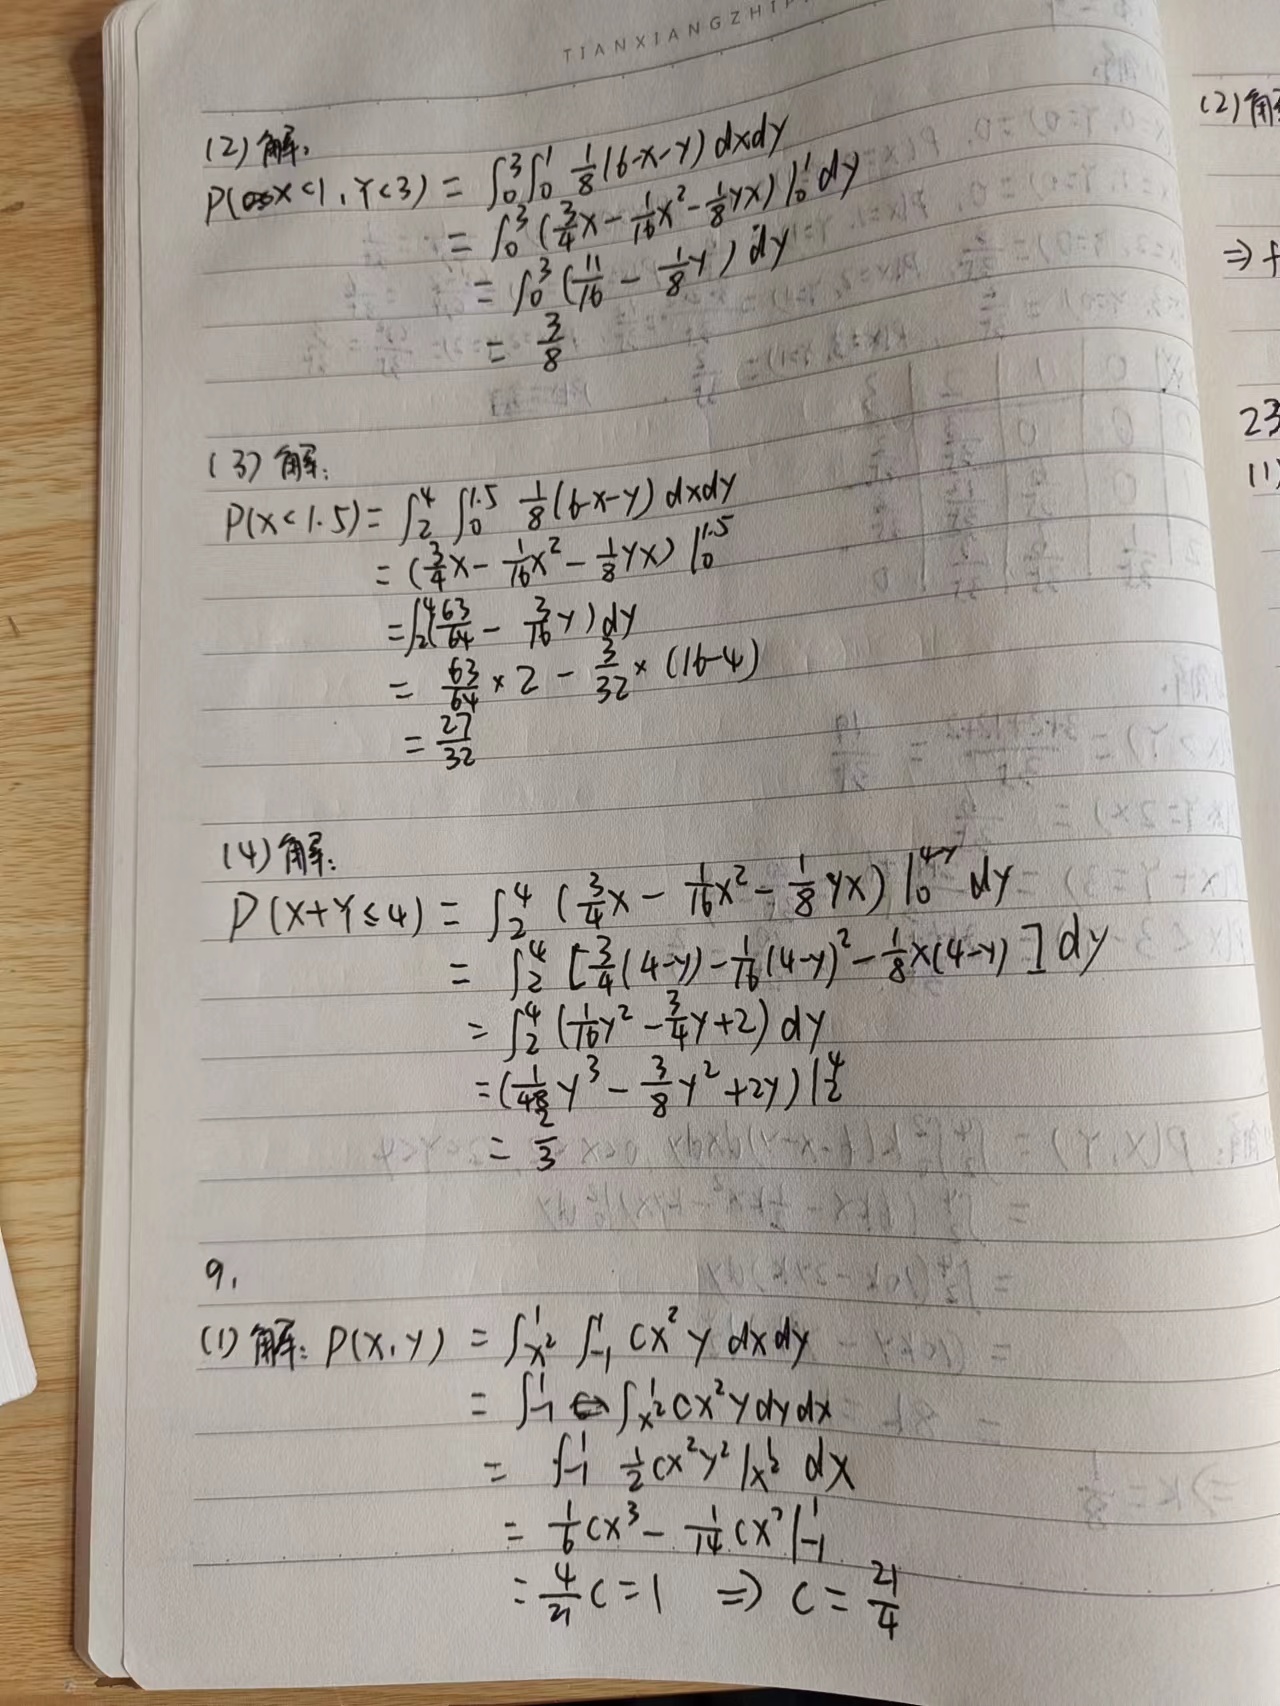 TIANXIANGZHI
(2) 解:
P(X<1, Y<3) = ∫₀³∫₀¹ 1/8(6-x-y) dxdy
= ∫₀³ (3/4x - 1/16x² - 1/8yx)|₀¹ dy
= ∫₀³ (11/16 - 1/8y) dy
= 3/8
(3) 解:
P(X<1.5) = ∫₂⁴ ∫₀^1.5 1/8(6-x-y) dxdy
= (3/4x - 1/16x² - 1/8yx)|₀^1.5
= ∫₂⁴(63/64 - 3/16y) dy
= 63/64 × 2 - 3/32 × (16-4)
= 27/32
(4) 解:
P(X+Y≤4) = ∫₂⁴ (3/4x - 1/16x² - 1/8yx)|₀^4-y dy
= ∫₂⁴ [3/4(4-y) - 1/16(4-y)² - 1/8x(4-y)] dy
= ∫₂⁴ (1/16y² - 3/4y + 2) dy
= (1/48y³ - 3/8y² + 2y)|₂⁴
= 2/3
9.
(1) 解: P(X,Y) = ∫_x²^1 ∫₋₁¹ cx²y dxdy
= ∫₋₁¹ ∫_x²^1 cx²y dydx
= ∫₋₁¹ 1/2cx²y²|_x²^1 dx
= 1/6cx³ - 1/14cx⁷|₋₁¹
= 4/21c = 1 ⇒ c = 21/4
(2) 解
⇒ f
23
(1)